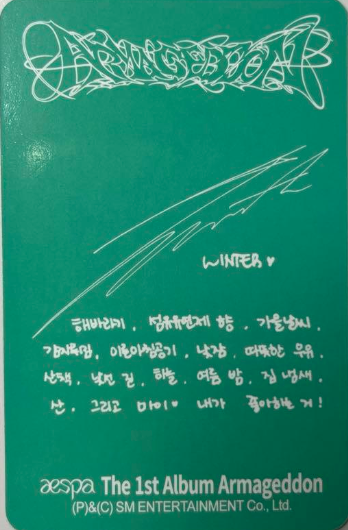 ARMAGEDDON
WINTER ♥
해바라기, 섬유유연제 향, 가을날씨,
감자튀김, 이른아침공기, 낮잠, 따뜻한 우유,
산책, 낯선 길, 하늘, 여름 밤, 집 냄새,
산, 그리고 마이♥ 내가 좋아하는 거!
aespa The 1st Album Armageddon
(P)&(C) SM ENTERTAINMENT Co., Ltd.